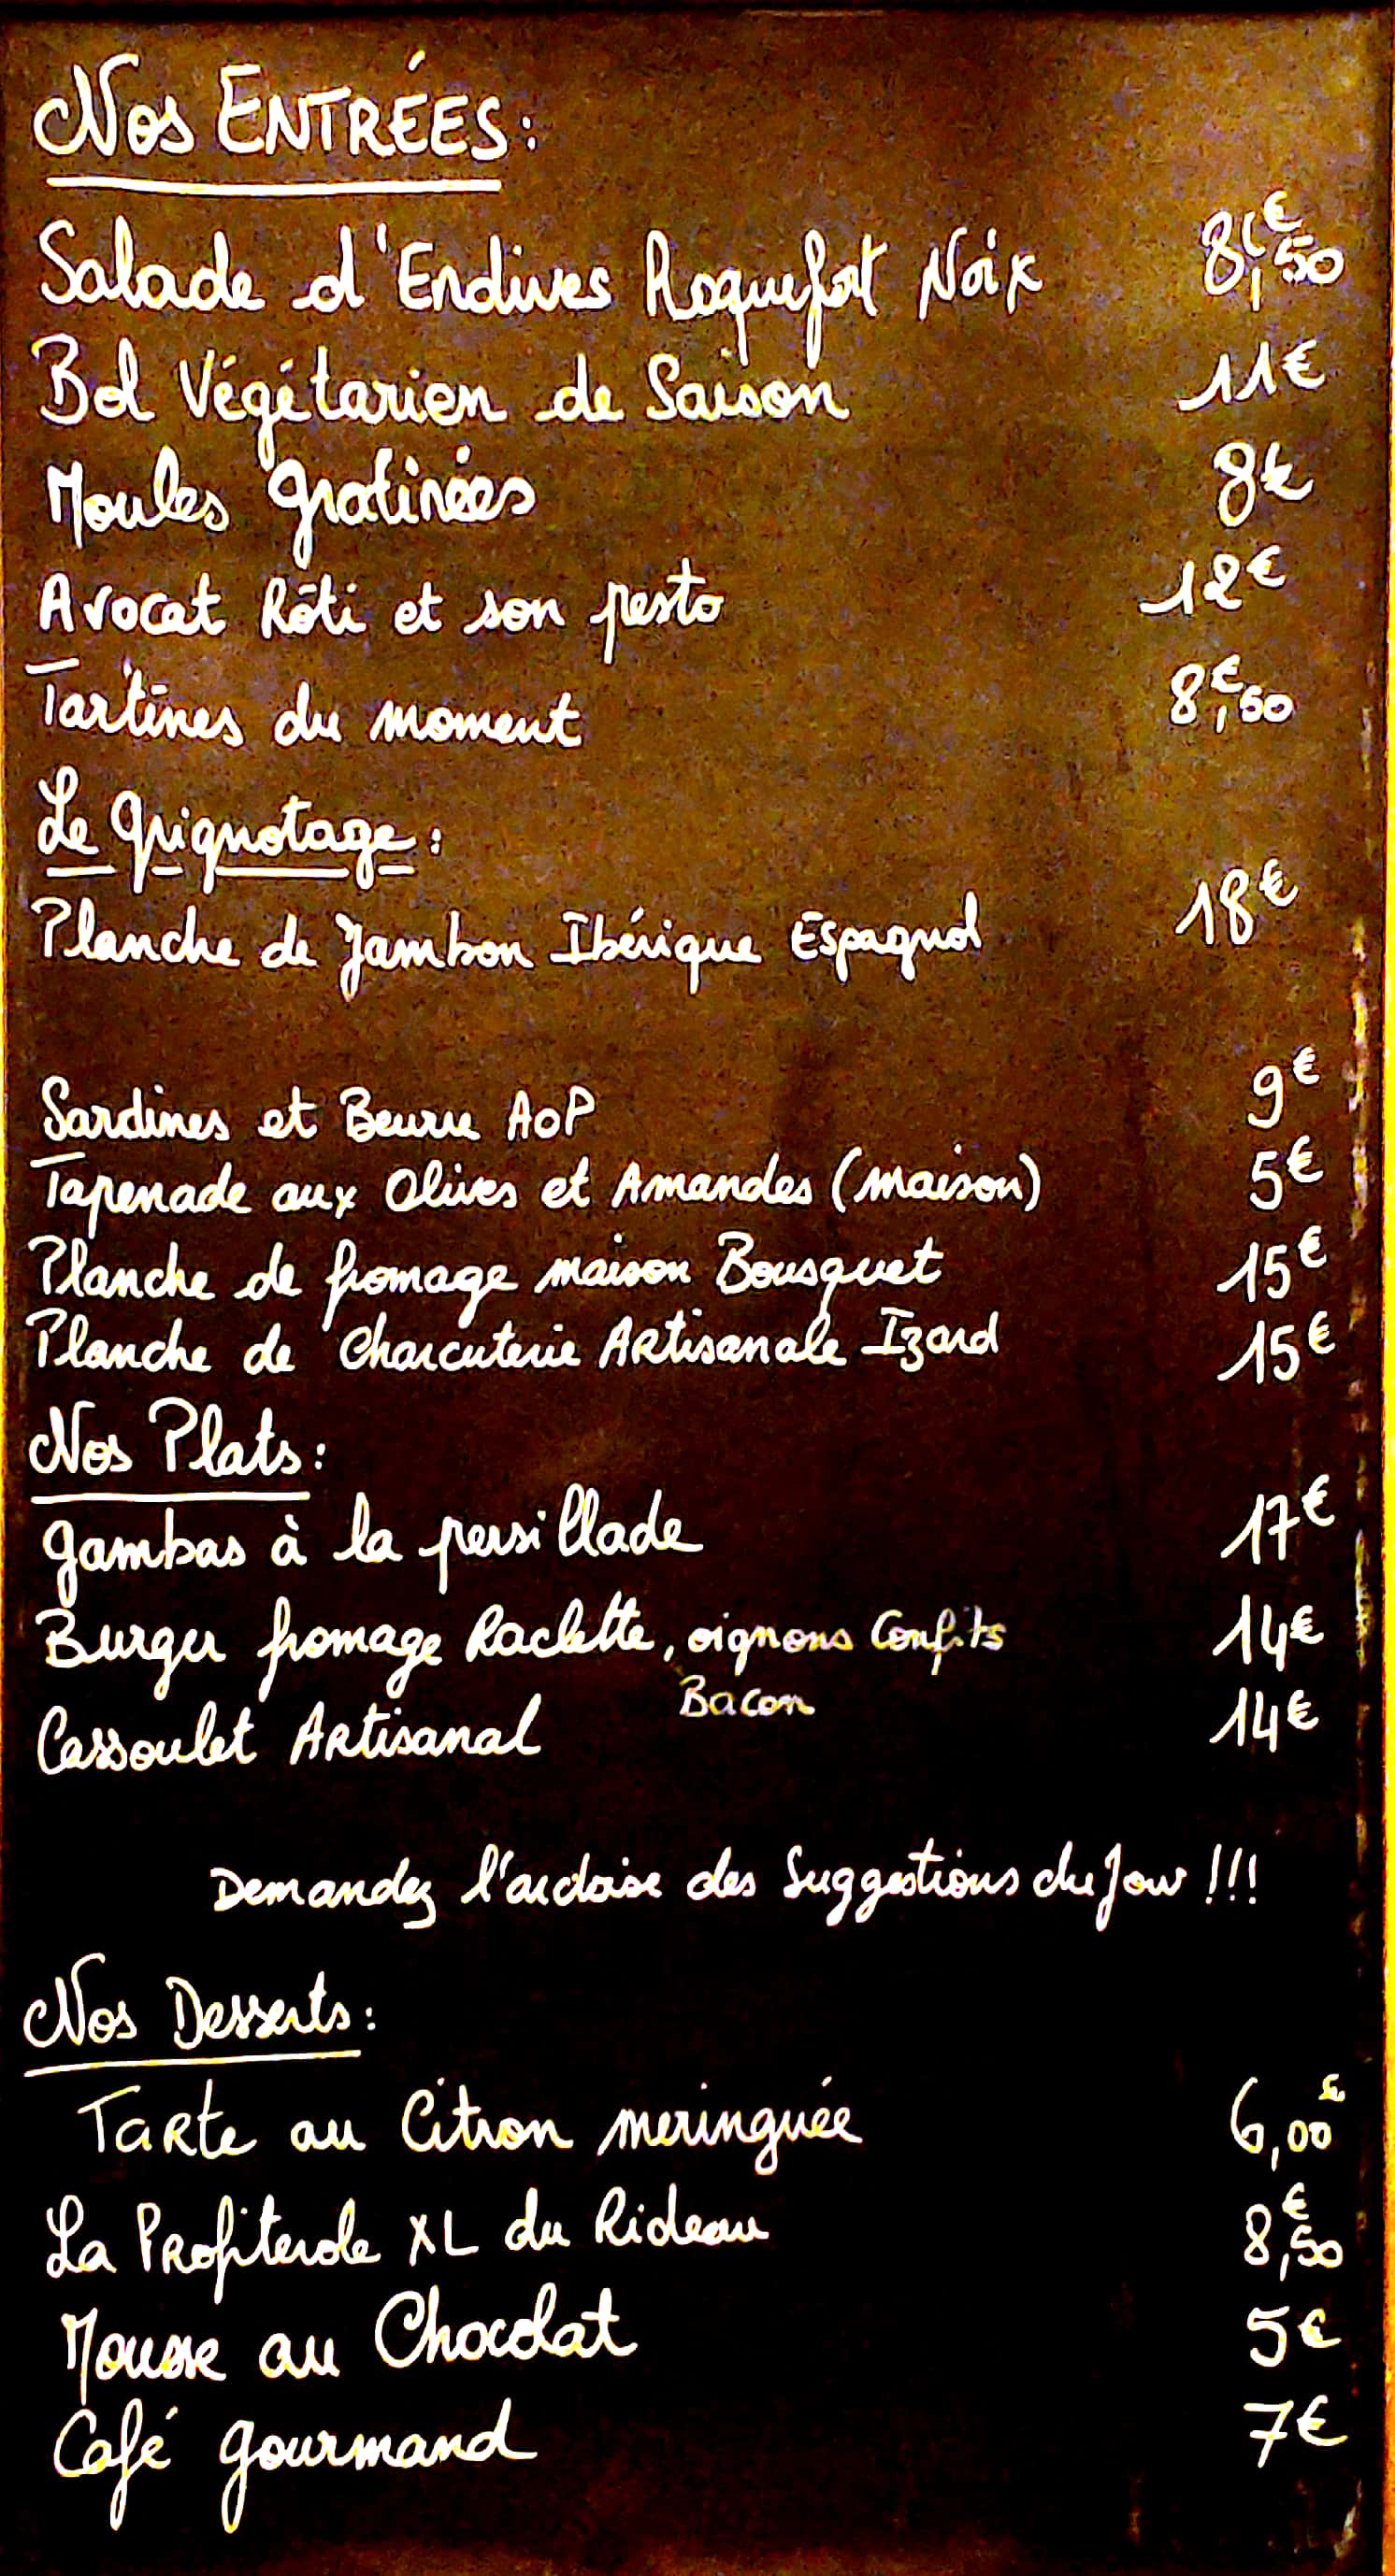 Nos ENTRÉES:
Salade d'Endives Roquefort Noix 8,€50
Bol Végétarien de Saison 11€
Moules gratinées 8€
Avocat Rôti et son pesto 12€
Tartines du moment 8,€50
Le grignotage:
Planche de Jambon Ibérique Espagnol 18€
Sardines et Beurre AOP 9€
Tapenade aux Olives et Amandes (maison) 5€
Planche de fromage maison Bousquet 15€
Planche de Charcuterie Artisanale Izard 15€
Nos Plats:
gambas à la persillade 17€
Burger fromage Raclette, oignons Confits 14€
Bacon
Cassoulet Artisanal 14€
Demandez l'ardoise des Suggestions du Jour !!!
Nos Desserts:
Tarte au Citron meringuée 6,00€
La Profiterole XL du Rideau 8,€50
Mousse au Chocolat 5€
Café gourmand 7€